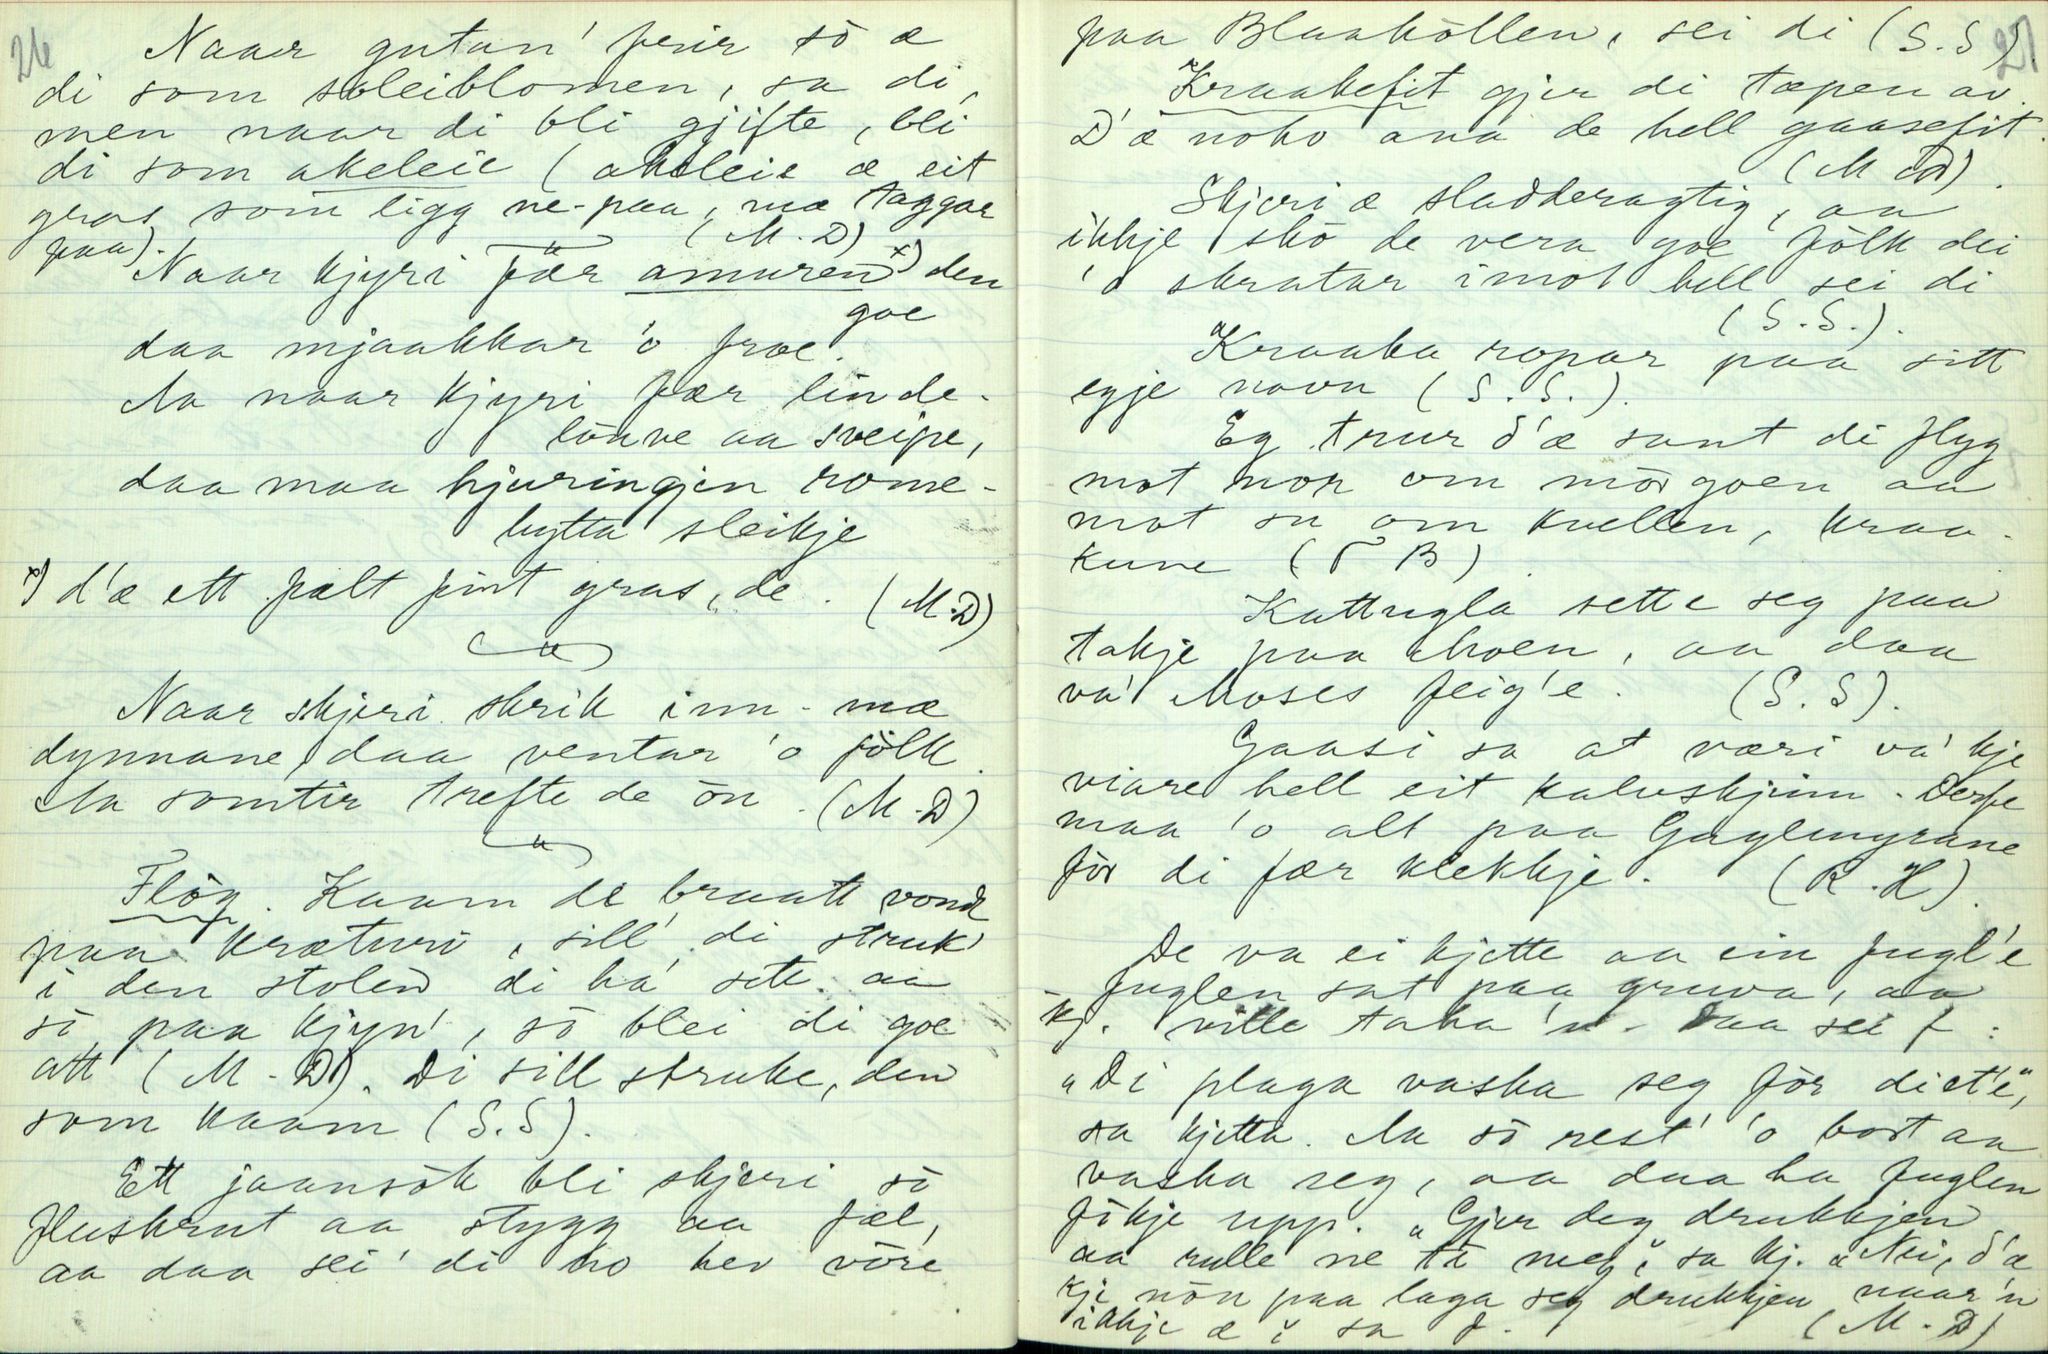 26
Naar gutan' frir so æ
di som soleiblomen, sa di,
men naar di bli gjifte, bli
di som akeleie (akeleie æ eit
gras som ligg ne-paa, mæ taggar
paa). (M.D)
Naar kjyri fær amuren x) den
goe
daa mjaakkar 'o froe.
Aa naar kjyri fær linde-
lauve aa sveipe,
daa maa hjuringjen rome-
bytta sleikje
x) d'æ ett fælt fint gras, de. (M.D)
Naar skjeri skrik inn-mæ
dynnane, daa ventar 'o fölk.
Aa somtir trefte de ön. (M.D)
Flög. Kaam de braatt vondt
paa kræturi, sill' di struk'
i den stolen di ha' sete aa
sö paa kjyn', sö blei di goe
att (M.D). Di sill struke, den
som kaam (S.S).
Ett jaansök bli skjeri sö
fluskrut aa stygg aa fæl,
aa daa sei' di ho hev vöre
27
paa Blaakollen, sei di (S.S).
Kraakefit gjer di tæpen av.
D'æ noko ana de hell gaasefit.
(M.D).
Skjeri æ sladderagtig, aa
ikkje skö de vera goe fölk dei
'o skratar imot hell sei di
(S.S.).
Kraaka ropar paa sitt
egje navn (S.S.).
Eg trur d'æ sant di flyg
mot nor om mörgoen aa
mot su om kvellen, kraa-
kune (T B)
Kattugla sette seg paa
takje paa Moen, aa daa
va' Moses feig'e. (S.S).
Gaasi sa at væri va' kje
viare hell eit kalvskjinn. Derfe
maa 'o alt paa Gaglemyrane
för di fær klekkje. (R.H).
De va ei kjette aa ein fugl'e
fuglen sat paa gruva, aa
kj. ville taka 'n. Daa sei f:
"Di plaga vaska seg för di et'e",
sa kjetta. Aa sö rest' 'o bort aa
vaska seg, aa daa ha fuglen
fökje upp. "Gjer deg drukkjen
aa rulle ne te meg", sa kj. "Nei, d'æ
kje nön paa laga seg drukkjen naar'n
ikkje æ", sa f. (M.D)